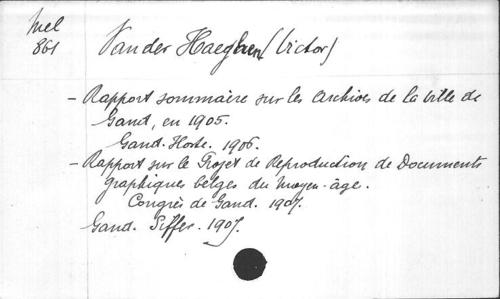 Mel
861
Van der Haeghen (Victor)
- Rapport sommaire sur les Archives de la Ville de
Gand, en 1905.
Gand. Hoste. 1906.
- Rapport sur le Projet de Reproduction de Documents
graphiques belges du moyen-âge.
Congrès de Gand. 1907.
Gand. Siffer. 1907.